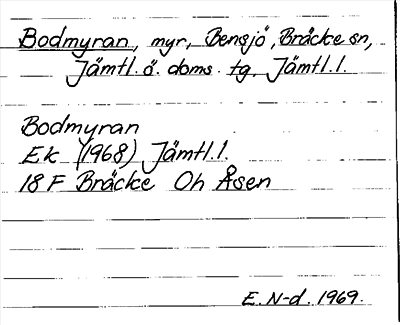 Bodmyran, myr, Bensjö, Bräcke sn,
Jämtl. ö. doms. tg. Jämtl. l.
Bodmyran
Ek (1968) Jämtl. l.
18 F Bräcke Oh Åsen
E. N-d. 1969.